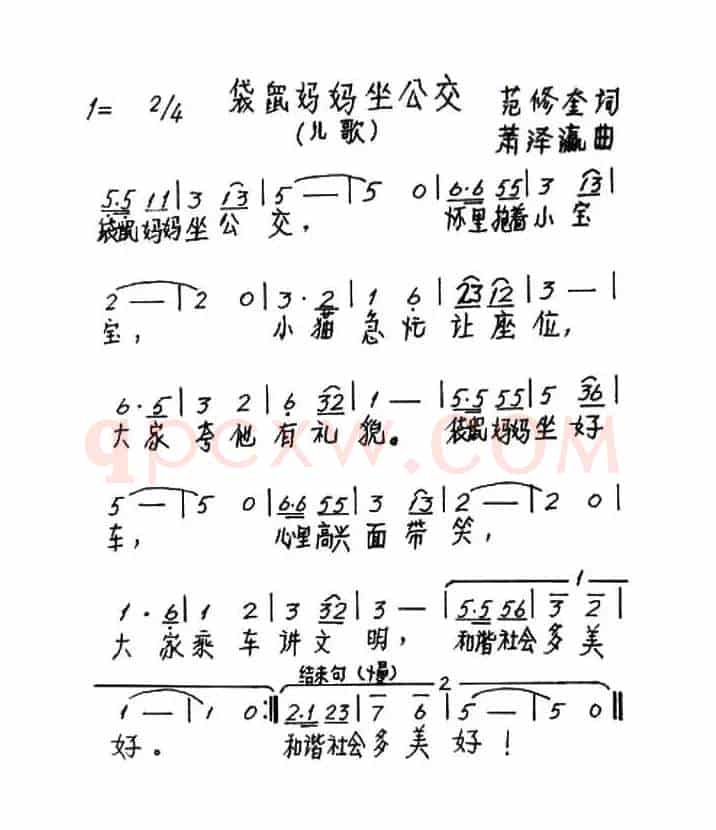 袋鼠妈妈坐公交
(儿歌)
1= 2/4
范修奎词
萧泽瀛曲
5·5 11 | 3 13 | 5 — | 5 0 | 6·6 55 | 3 13 |
袋鼠妈妈坐公交, 怀里抱着小宝
2 — | 2 0 | 3·2 | 1 6 | 23 12 | 3 — |
宝, 小猫急忙让座位,
6·5 | 3 2 | 6 32 | 1 — | 5·5 55 | 5 36 |
大家夸他有礼貌。袋鼠妈妈坐好
5 — | 5 0 | 6·6 55 | 3 13 | 2 — | 2 0 |
车, 心里高兴面带笑,
1·6 | 1 2 | 3 32 | 3 — | 5·5 56 | 3 2 |
1
大家乘车讲文明, 和谐社会多美
结束句(慢)
2
1 — | 1 0 :‖ 2·1 23 | 7 6 | 5 — | 5 0 ‖
好。 和谐社会多美好!
qpcxw.com